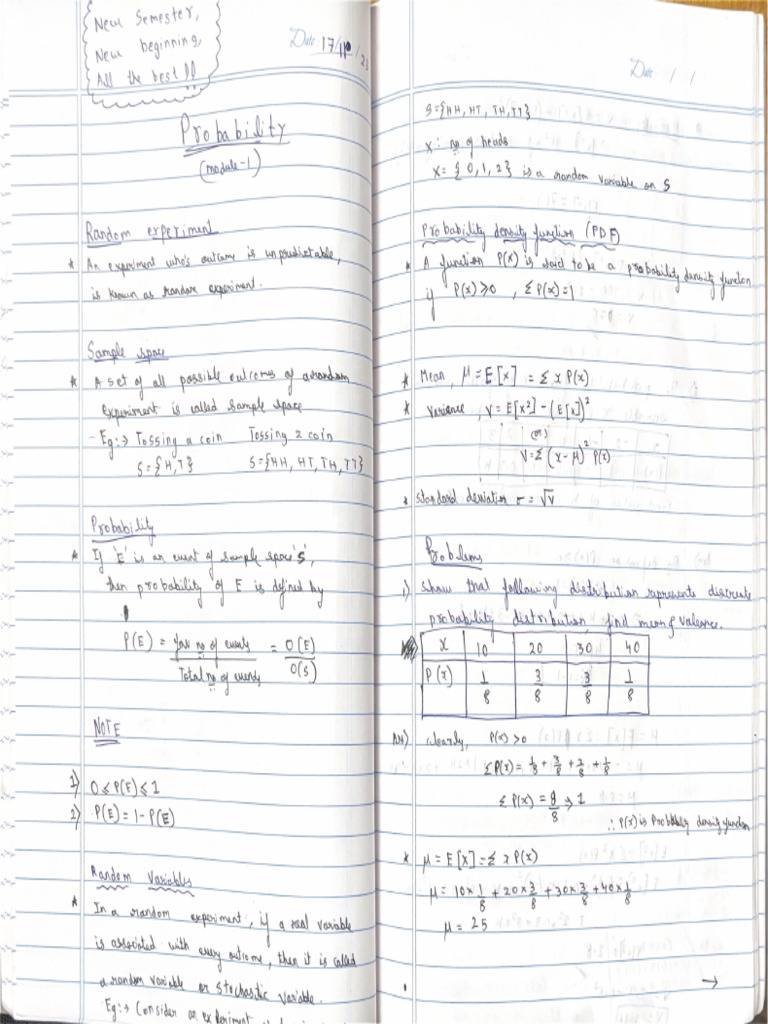 New Semester,
New beginning,
All the best !!
Date: 17/11/23
Probability
(module-1)
Random experiment
* An experiment who's outcome is unpredictable,
is known as random experiment.
Sample space
* A set of all possible outcomes of a random
experiment is called sample space
- Eg:→ Tossing a coin Tossing 2 coin
S={H,T} S={HH, HT, TH, TT}
Probability
* If 'E' is an event of sample space 'S',
then probability of E is defined by
P(E) = fav no of events / Total no of events = O(E) / O(S)
NOTE
1) 0≤P(E)≤1
2) P(E)=1-P(E)
Random Variables
* In a random experiment, if a real variable
is associated with every outcome, then it is called
a random variable or stochastic variable.
Eg:→ Consider an experiment
Date / /
S={HH, HT, TH, TT}
X: no of heads
X= {0, 1, 2} is a random variable on S
Probability density function (PDF)
* A function P(x) is said to be a probability density function
if P(x)≥0 , ΣP(x)=1
* Mean, μ=E[x] = Σ x P(x)
* Variance, V=E[x²]-(E[x])²
(or)
V=Σ(x-μ)² P(x)
* Standard deviation σ=√V
Problems
1) Show that following distribution represents discrete
probability distribution, find mean & variance.
X 10 20 30 40
P(x) 1/8 3/8 3/8 1/8
Ans) Clearly, P(x)>0
ΣP(x)= 1/8 + 3/8 + 3/8 + 1/8
ΣP(x) = 8/8 → 1
∴ P(x) is Probability density function
* μ=E[x]=Σ x P(x)
μ=10×1/8 + 20×3/8 + 30×3/8 + 40×1/8
μ=25
→